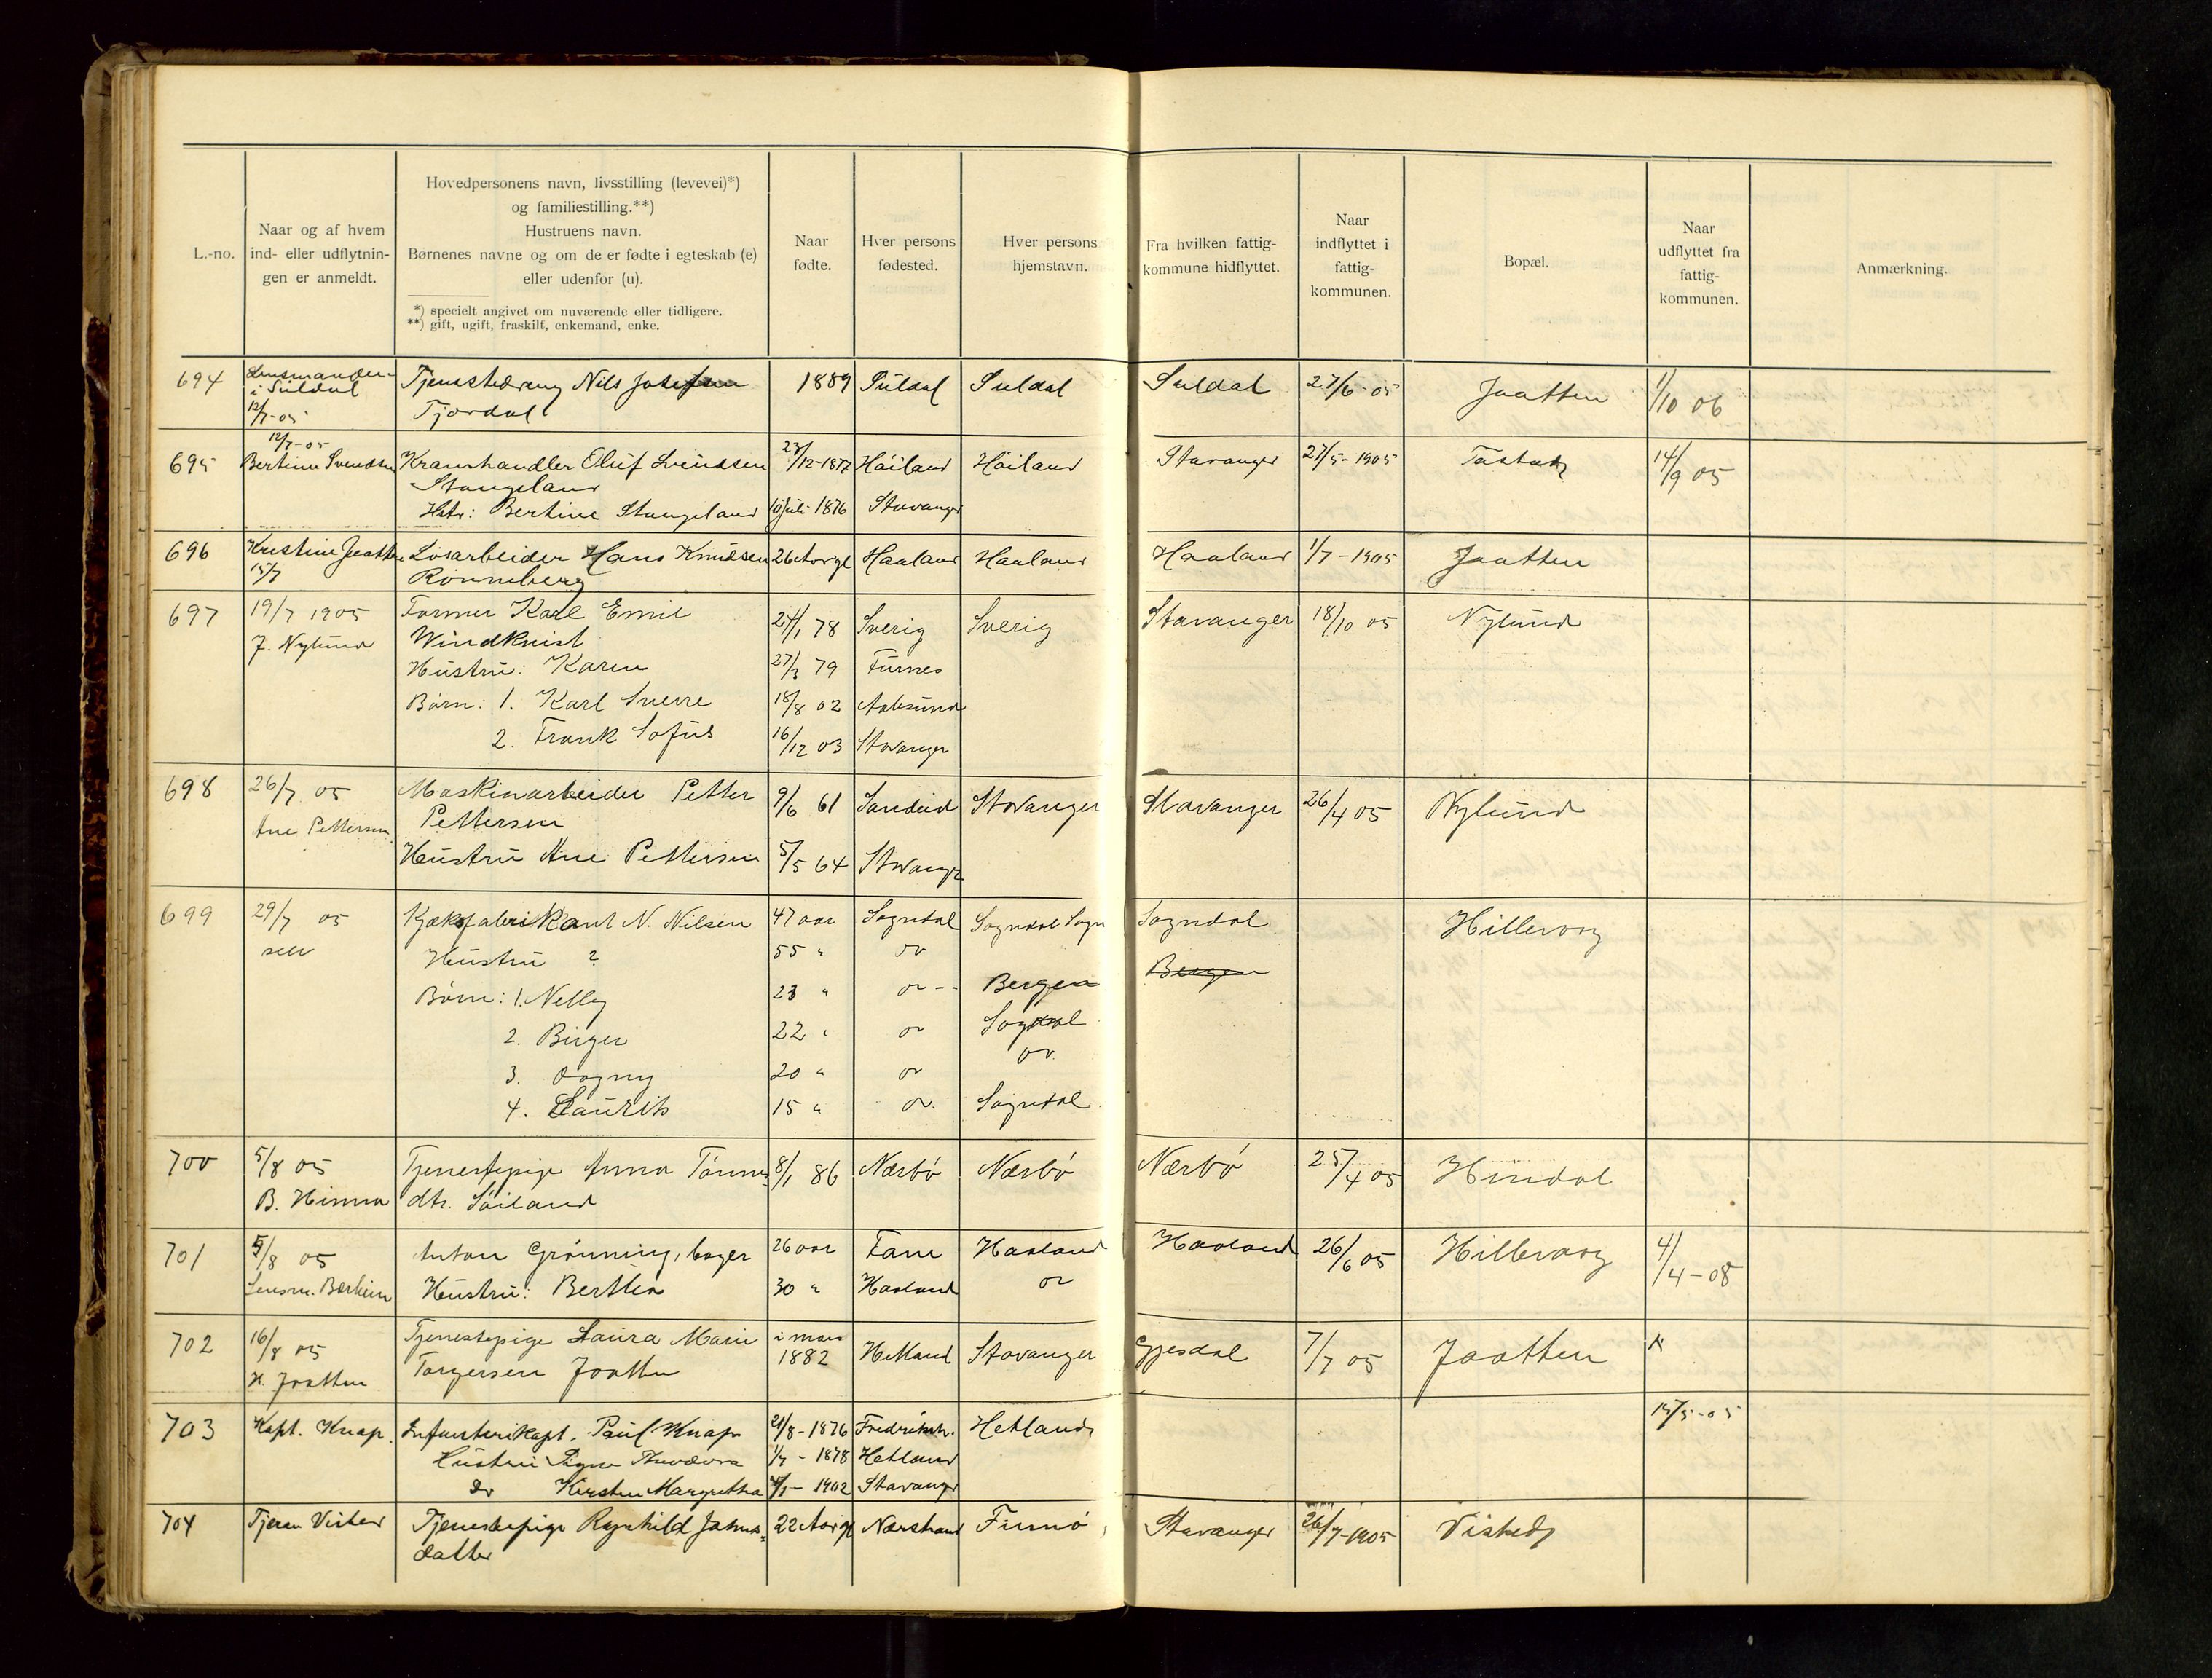 L.-no.
Naar og af hvem
ind- eller udflytnin-
gen er anmeldt.
Hovedpersonens navn, livsstilling (levevei)*)
og familiestilling.**)
Hustruens navn.
Børnenes navne og om de er fødte i egteskab (e)
eller udenfor (u).
*) specielt angivet om nuværende eller tidligere.
**) gift, ugift, fraskilt, enkemand, enke.
Naar
fødte.
Hver persons
fødested.
Hver persons
hjemstavn.
Fra hvilken fattig-
kommune hidflyttet.
Naar
indflyttet i
fattig-
kommunen.
Bopæl.
Naar
udflyttet fra
fattig-
kommunen.
Anmærkning.
694 Lensmanden Tjenestedreng Nils Josefsen 1889 Suldal Suldal Suldal 27/6-05 Jaatten 1/10 06
i Suldal Tjordal
12/7-05
12/7-05
695 Bertine Svendsen Kramhandler Oluf Svendsen 23/12-1877 Høiland Høiland Stavanger 27/5-1905 14/9 05
Stangeland
Hstr: Bertine Stangeland 10 juli 1876 Stavanger
696 Kristine Jaatten Løsarbeider Hans Knudsen 26 Aarige Haaland Haaland Haaland 1/7-1905 Jaatten
15/7 Rønneberg
697 19/7 1905 Farmer Karl Emil 24/1 78 Sverig Sverig Stavanger 18/10 05 Nylund
J. Nylund Windkvist
Hustru: Karen 27/3 79 Furnes
Børn: 1. Karl Sverre 18/8 02 Aalesund
2. Frank Sofus 16/12 03 Stavanger
698 26/7 05 Maskinarbeider Petter 9/6 61 Sandeid Stavanger Stavanger 26/4 05 Nylund
Ane Pettersen Pettersen
Hustru Ane Pettersen 5/5 64 Stavanger
699 29/7 05 Kjæksfabrikant N. Nilsen 47 aar Sogndal Sogndal Sogn Sogndal Hillevaag
selv Hustru ? 55 " do Bergen
Børn: 1. Nelly 23 " do -- Bergen
2. Birger 22 " do Sogndal
3. Dagny 20 " do do
4. Laurits 15 " do. Sogndal
700 5/8 05 Tjenestepige Anna Tønnes- 8/1 86 Nærbø Nærbø Nærbø 25/4 05 Hindal
B. Hinna dtr. Søiland
701 5/8 05 Anton Grønning, bager 26 aar Fane Haaland Haaland 26/6 05 Hillevaag 4/4-08
Lensm. Bærheim Hustru: Bertha 30 " Haaland do
702 16/8 05 Tjenestepige Laura Marie i mars 1882 Hetland Stavanger Gjesdal 7/7 05 Jaatten
H. Jaatten Torgersen Jaatten
703 Kapt. Knap. Infanterikapt. Paul Knap 21/8-1876 Fredrikst. Hetland 15/5-05
Hustru Signe 1/7-1878 Hetland
Do Kirsten Margretha 1902 Stavanger
704 Tjeran Tjenestepige Ragnhild Jakobs- 22 Aarige Nærstrand Finnø Stavanger 26/7-1905
datter